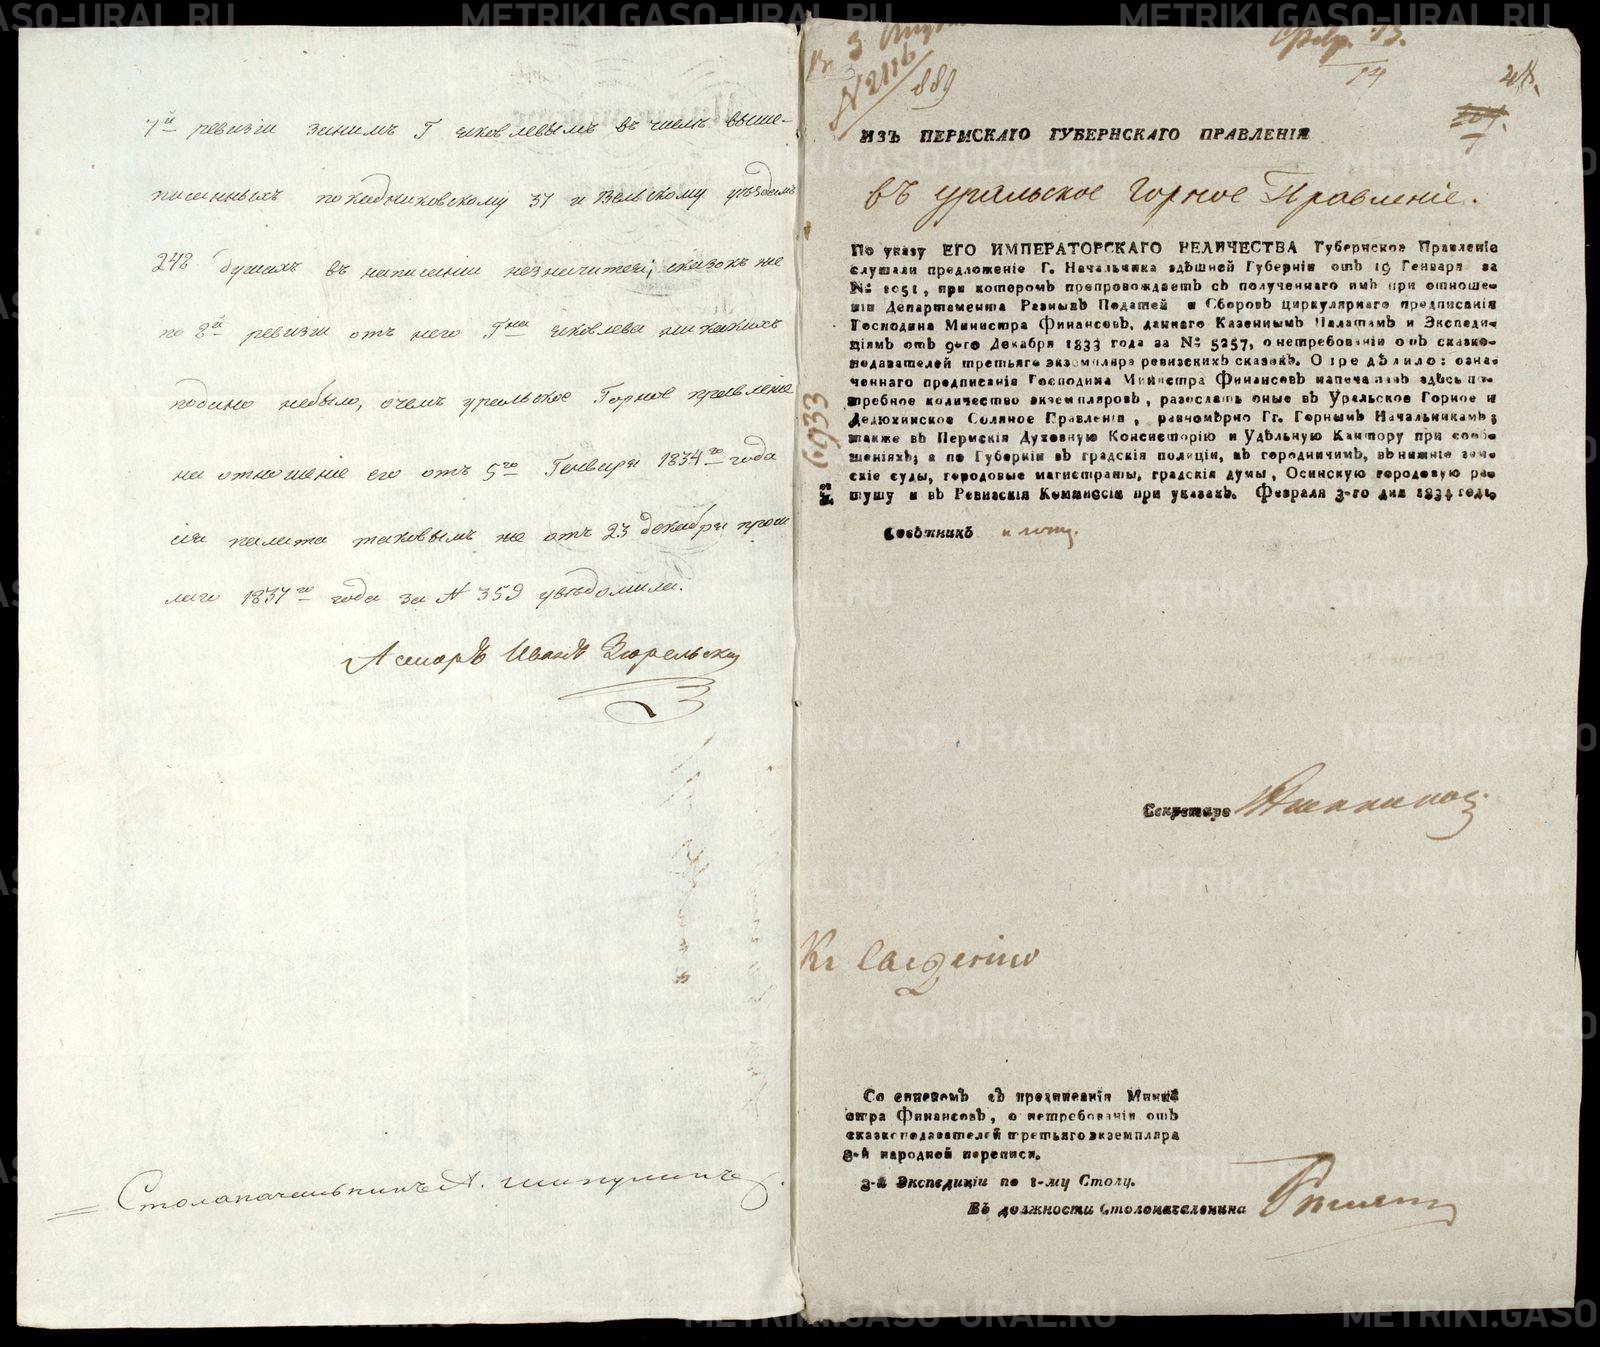 7й ревизіи занимъ Г Яковлевымъ въ числѣ выше-
писанныхъ по Кадниковскому 37 и Вельскому уѣздамъ
242 душахъ въ написаніи незначится; сказокъ же
по 8й ревизіи отъ него Гна Яковлева никакихъ
подано небыло, очемъ уральское Горное правленіе
на отношеніе его отъ 5го Генваря 1834го года
сія палата таковымъ же отъ 23 декабря прош
лаго 1837го года за № 359 увѣдомила.
Асесоръ Иванъ
Столоначальникъ А.
№ 2116
889
14
ИЗЪ ПЕРМСКАГО ГУБЕРНСКАГО ПРАВЛЕНІЯ
въ уральское Горное Правленіе.
По указу ЕГО ИМПЕРАТОРСКАГО ВЕЛИЧЕСТВА Губернское Правленіе
слушали предложеніе Г. Начальника здѣшней Губерніи отъ 19 Генваря за
№ 1051, при которомъ препровождаетъ съ полученнаго имъ при отноше-
ніи Департамента Разныхъ Податей и Сборовъ циркулярнаго предписанія
Господина Министра Финансовъ, даннаго Казеннымъ Палатамъ и Экспеди-
ціямъ отъ 9-го Декабря 1833 года за № 5257, о нетребованіи отъ сказко-
подавателей третьяго экземпляра ревизскихъ сказокъ. Опредѣлило: озна-
ченнаго предписанія Господина Министра Финансовъ напечатавъ здѣсь по-
требное количество экземпляровъ, разослать оные въ Уральское Горное и
Дедюхинское Соляное Правленія, равномѣрно Гг. Горнымъ Начальникамъ;
также въ Пермскія Духовную Консисторію и Удѣльную Контору при сооб-
щеніяхъ; а по Губерніи въ градскія полиціи, къ городничимъ, въ нижніе зем-
скіе суды, городовые магистраты, градскія думы, Осинскую городовую ра-
тушу и въ Ревизскія Коммиссіи при указахъ. Февраля 3-го дня 1834 года.
№ 6933
Совѣтникъ
Секретарь
Со спискомъ съ предписанія Мини-
стра Финансовъ, о нетребованіи отъ
сказкоподавателей третьяго экземпляра
8-й народной переписи.
3-й Экспедиціи по 1-му Столу.
Въ должности Столоначальника